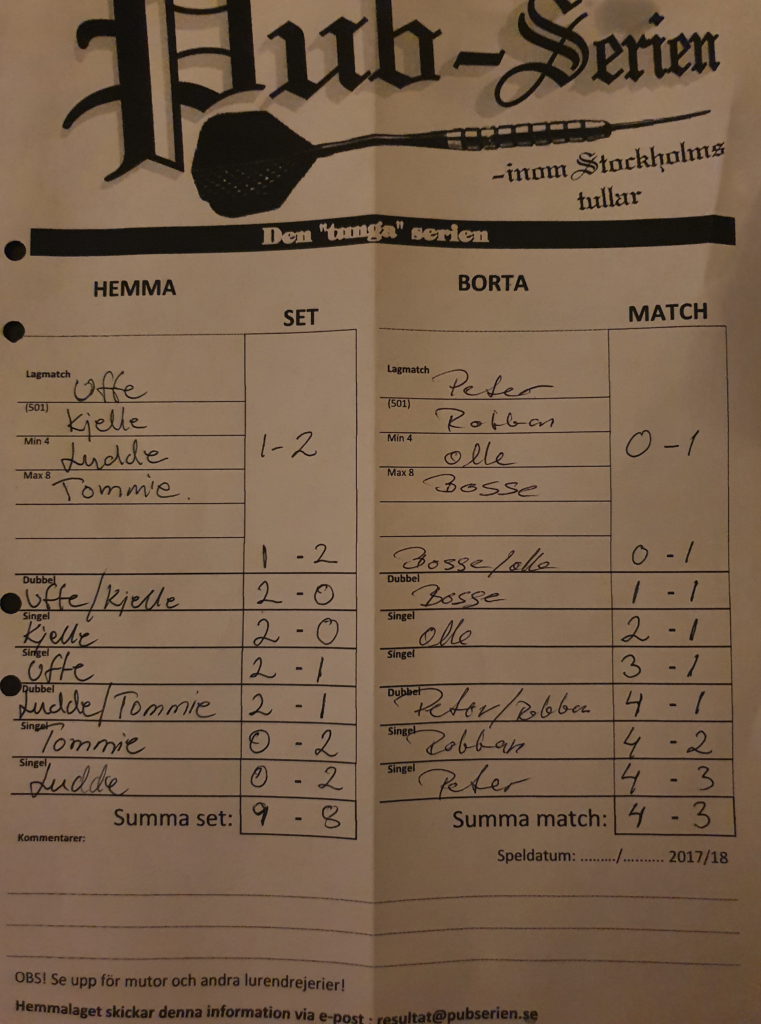 Pub-Serien
-inom Stockholms
tullar
Den "tunga" serien
HEMMA
BORTA
SET
MATCH
Lagmatch Uffe
Lagmatch Peter
(501) Kjelle
(501) Robban
Min 4 Ludde 1-2
Min 4 Olle 0-1
Max 8 Tommie.
Max 8 Bosse
1 - 2
Bosse/Olle 0 - 1
Dubbel Uffe/Kjelle 2 - 0
Dubbel Bosse 1 - 1
Singel Kjelle 2 - 0
Singel Olle 2 - 1
Singel Uffe 2 - 1
Singel 3 - 1
Dubbel Ludde/Tommie 2 - 1
Dubbel Peter/Robban 4 - 1
Singel Tommie 0 - 2
Singel Robban 4 - 2
Singel Ludde 0 - 2
Singel Peter 4 - 3
Summa set: 9 - 8
Summa match: 4 - 3
Kommentarer:
Speldatum: ........./.......... 2017/18
OBS! Se upp för mutor och andra lurendrejerier!
Hemmalaget skickar denna information via e-post : resultat@pubserien.se